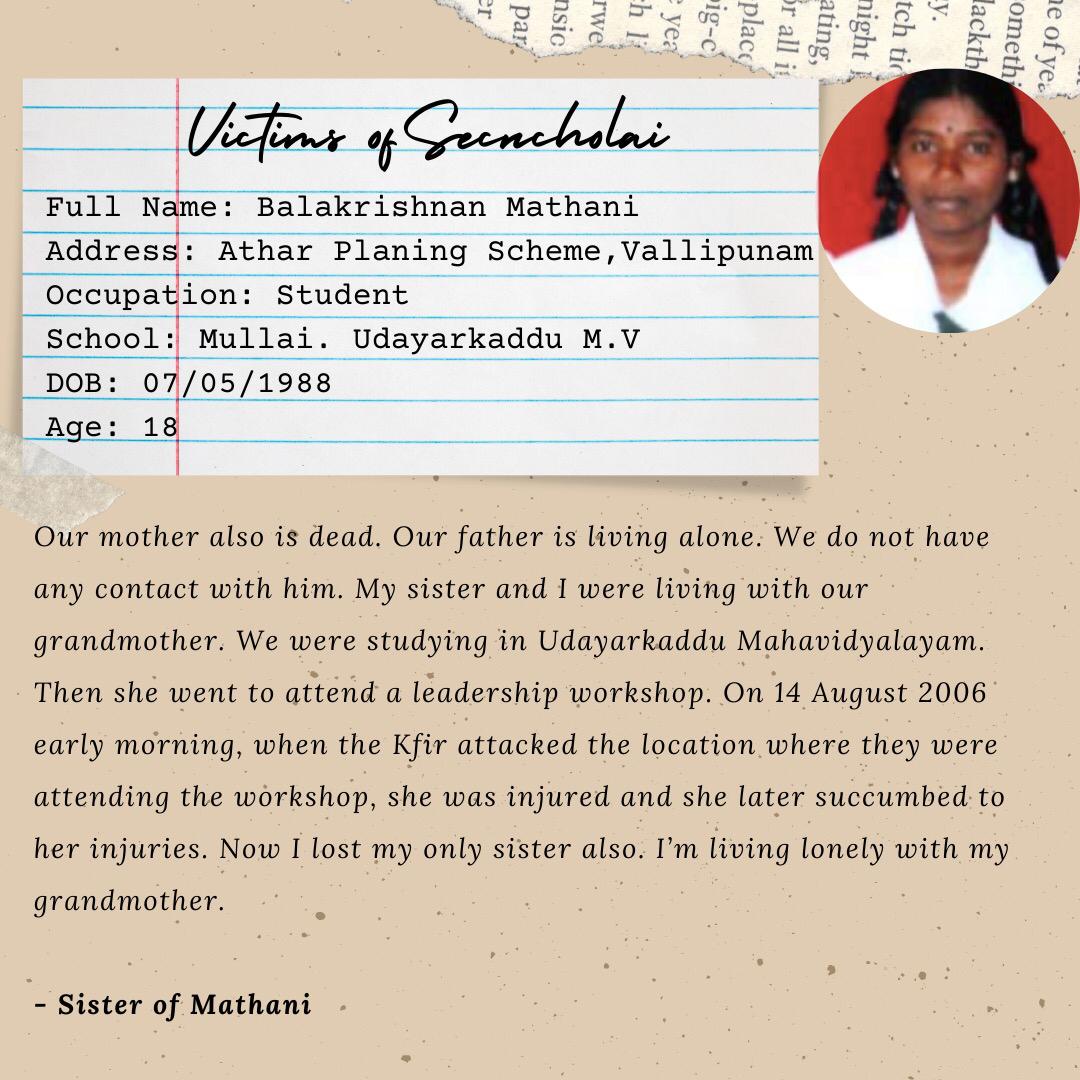 er
par
nsic
rwe
ch l
e yea
pig-c
place
or all i
ating,
night
tch tic
y.
lackth
omethi
ne of yea
Victims of Secncholai
Full Name: Balakrishnan Mathani
Address: Athar Planing Scheme,Vallipunam
Occupation: Student
School: Mullai. Udayarkaddu M.V
DOB: 07/05/1988
Age: 18
Our mother also is dead. Our father is living alone. We do not have
any contact with him. My sister and I were living with our
grandmother. We were studying in Udayarkaddu Mahavidyalayam.
Then she went to attend a leadership workshop. On 14 August 2006
early morning, when the Kfir attacked the location where they were
attending the workshop, she was injured and she later succumbed to
her injuries. Now I lost my only sister also. I’m living lonely with my
grandmother.
– Sister of Mathani